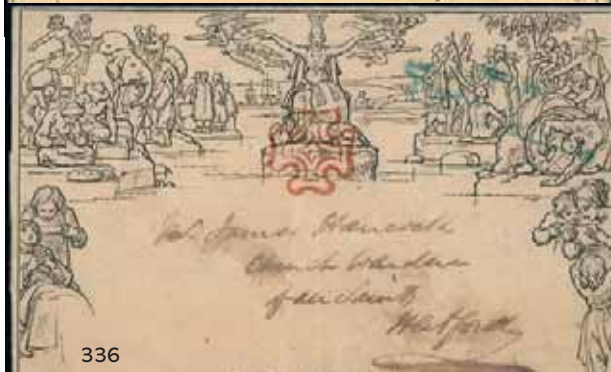 Mr. James Hancock
Church Warden
of All Saints
Hertford
336